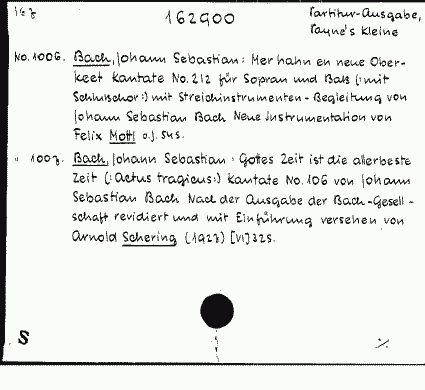 162900
Partitur-Ausgabe,
Payne's Kleine
No. 1006. Bach, Johann Sebastian: Mer hahn en neue Ober-
keet Kantate No. 212 für Sopran und Baß (:mit
Schlußchor:) mit Streichinstrumenten-Begleitung von
Johann Sebastian Bach Neue Instrumentation von
Felix Mottl o.J. 54S.
" 1007. Bach, Johann Sebastian: Gottes Zeit ist die allerbeste
Zeit (:Actus tragicus:) Kantate No. 106 von Johann
Sebastian Bach Nach der Ausgabe der Bach-Gesell-
schaft revidiert und mit Einführung versehen von
Arnold Schering (1927) [VI] 32S.
S
./.